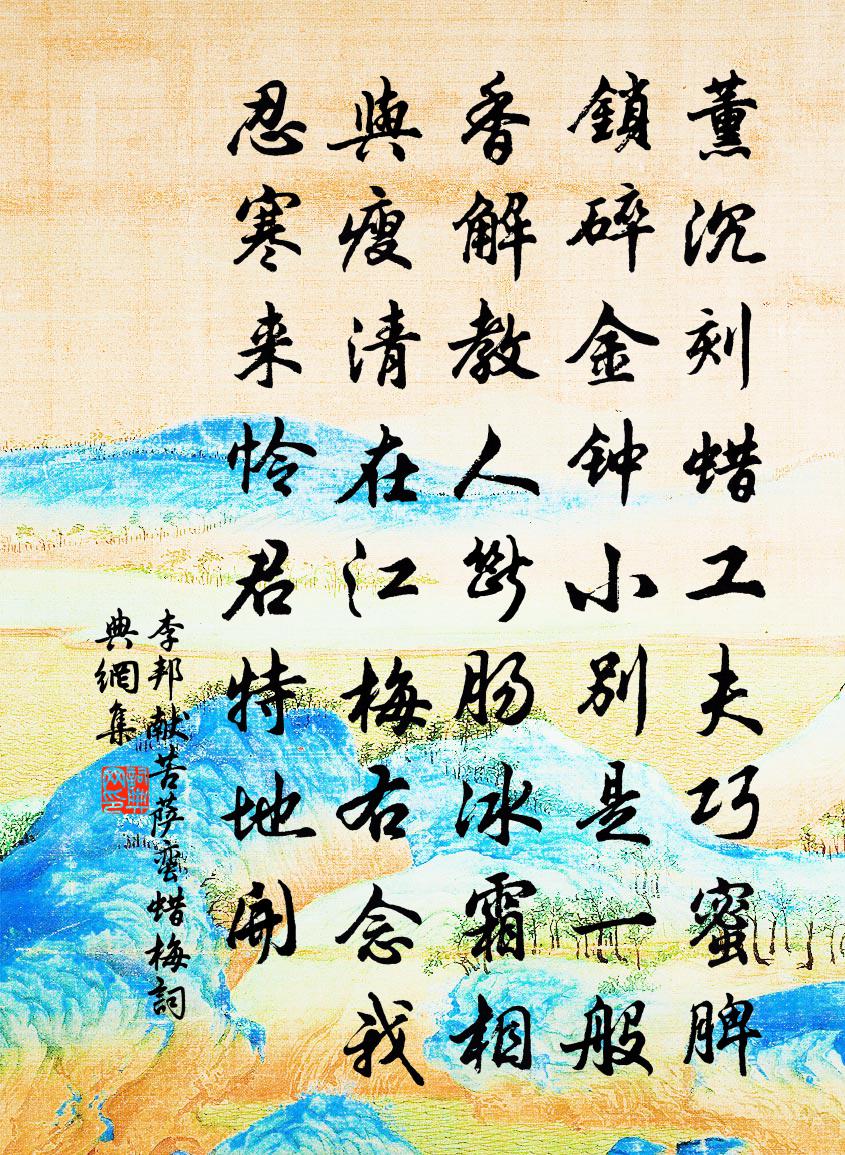 薰沉刻蜡工夫巧蜜脾
鎖碎金钟小别是一般
香解教人断肠冰霜相
與瘦清在江梅右念我
忍寒来怜君特地開
李邦献菩萨蛮蜡梅詞
典網集